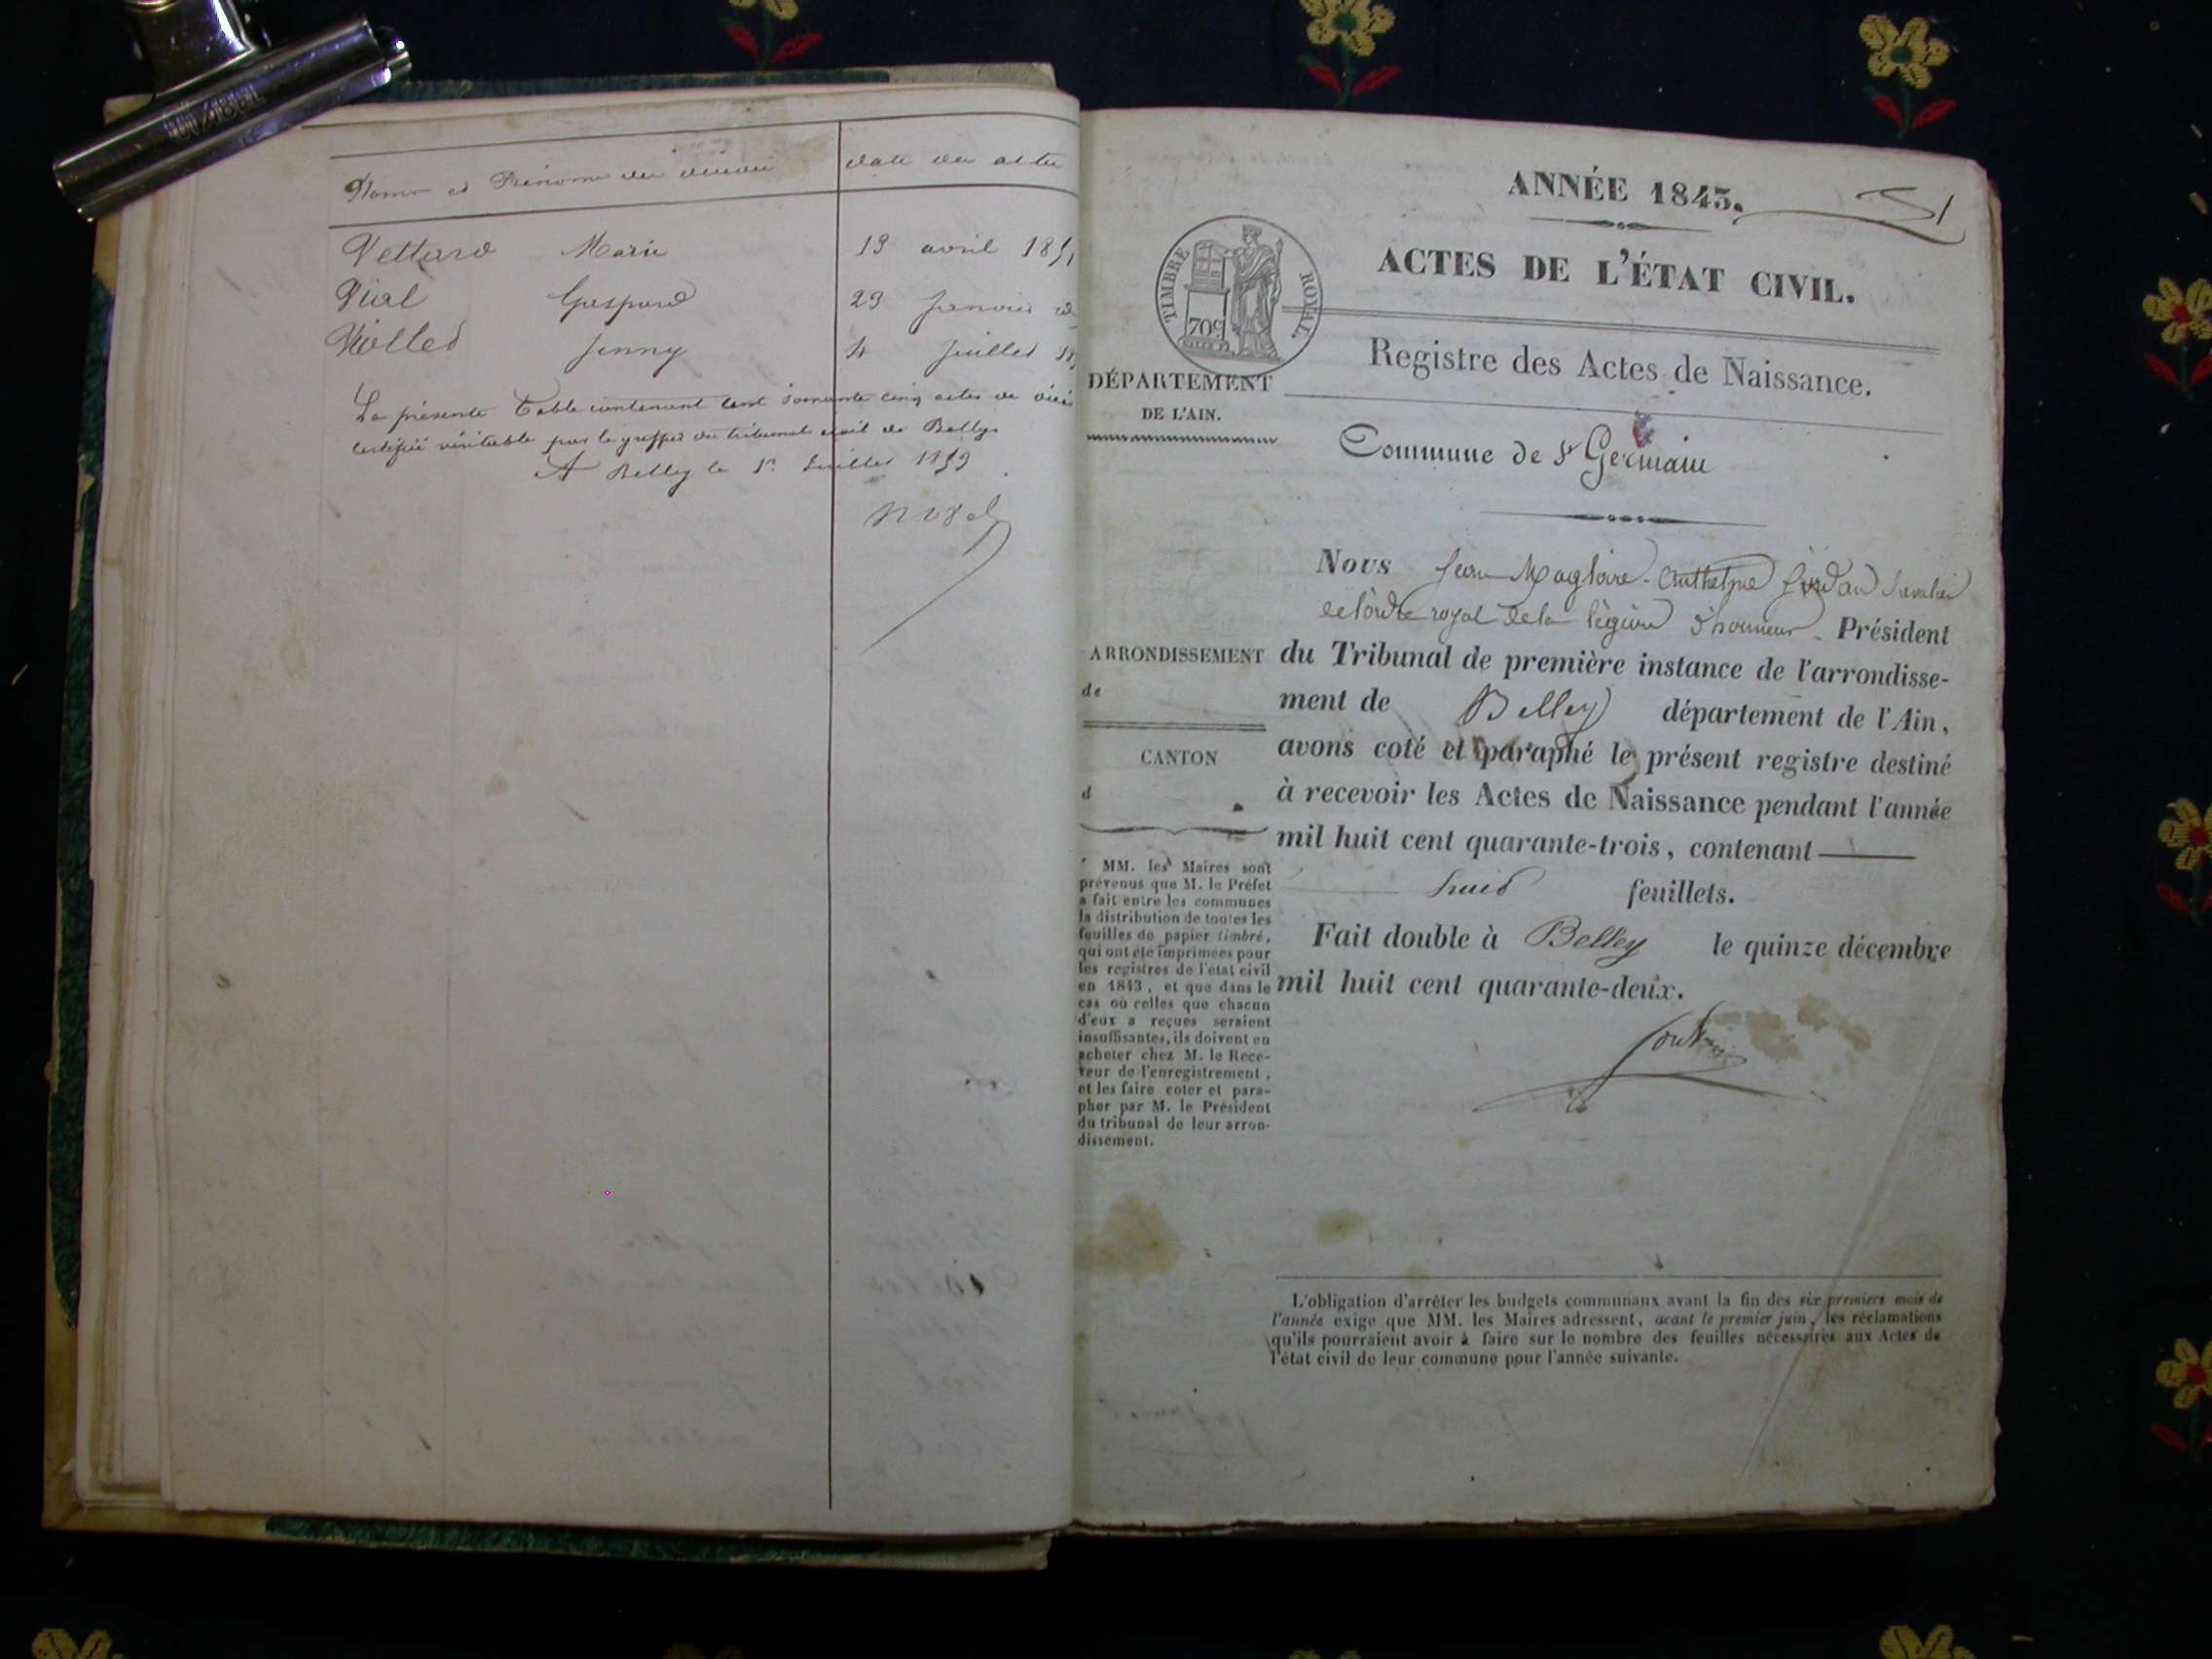 Noms et Prénoms des décédés
date des actes
Vettard Marie 19 avril 185
Vial Gaspard 29 janvier
Viollet Jenny 4 juillet
La présente Table contenant cent soixante cinq actes de décès
certifiée véritable par le greffier du tribunal civil de Belley
A Belley le 1er Juillet 1859
ANNÉE 1843.
ACTES DE L'ÉTAT CIVIL.
TIMBRE ROYAL
70c
Registre des Actes de Naissance.
DÉPARTEMENT
DE L'AIN.
Commune de St Germain
Nous Jean Magloire Anthelme Jordan chevalier
de l'ordre royal de la légion d'honneur Président
ARRONDISSEMENT
de
CANTON
d
du Tribunal de première instance de l'arrondisse-
ment de Belley département de l'Ain,
avons coté et paraphé le présent registre destiné
à recevoir les Actes de Naissance pendant l'année
mil huit cent quarante-trois, contenant
huit feuillets.
Fait double à Belley le quinze décembre
mil huit cent quarante-deux.
MM. les Maires sont
prévenus que M. le Préfet
a fait entre les communes
la distribution de toutes les
feuilles de papier timbré,
qui ont été imprimées pour
les registres de l'état civil
en 1843, et que dans le
cas où celles que chacun
d'eux a reçues seraient
insuffisantes, ils doivent en
acheter chez M. le Rece-
veur de l'enregistrement,
et les faire coter et para-
pher par M. le Président
du tribunal de leur arron-
dissement.
L'obligation d'arrêter les budgets communaux avant la fin des six premiers mois de
l'année exige que MM. les Maires adressent, avant le premier juin, les réclamations
qu'ils pourraient avoir à faire sur le nombre des feuilles nécessaires aux Actes de
l'état civil de leur commune pour l'année suivante.